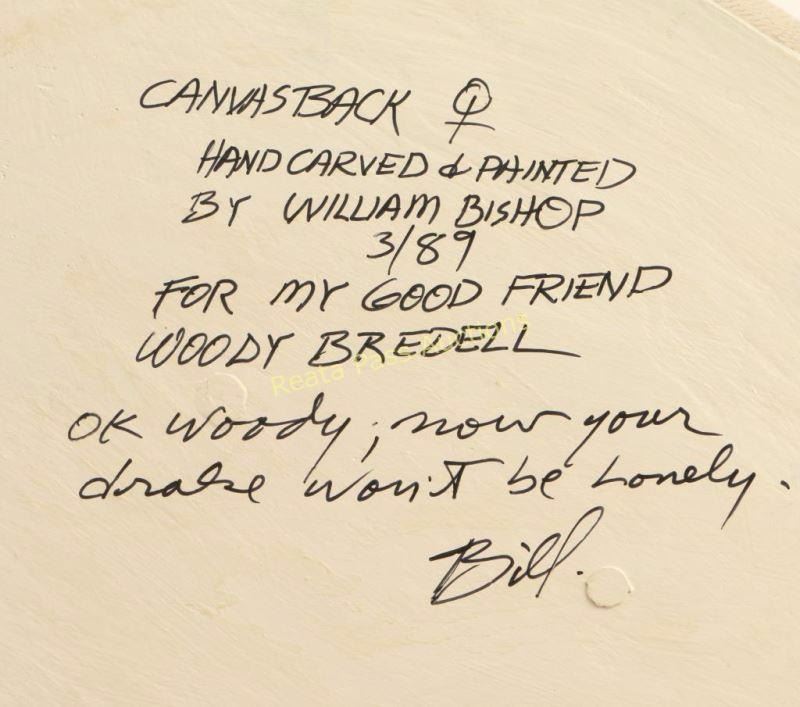 CANVASBACK ♀
HAND CARVED & PAINTED
BY WILLIAM BISHOP
3/89
FOR MY GOOD FRIEND
WOODY BREDELL
Reata Pass Auctions
OK Woody, now your
drake won't be Lonely.
Bill.